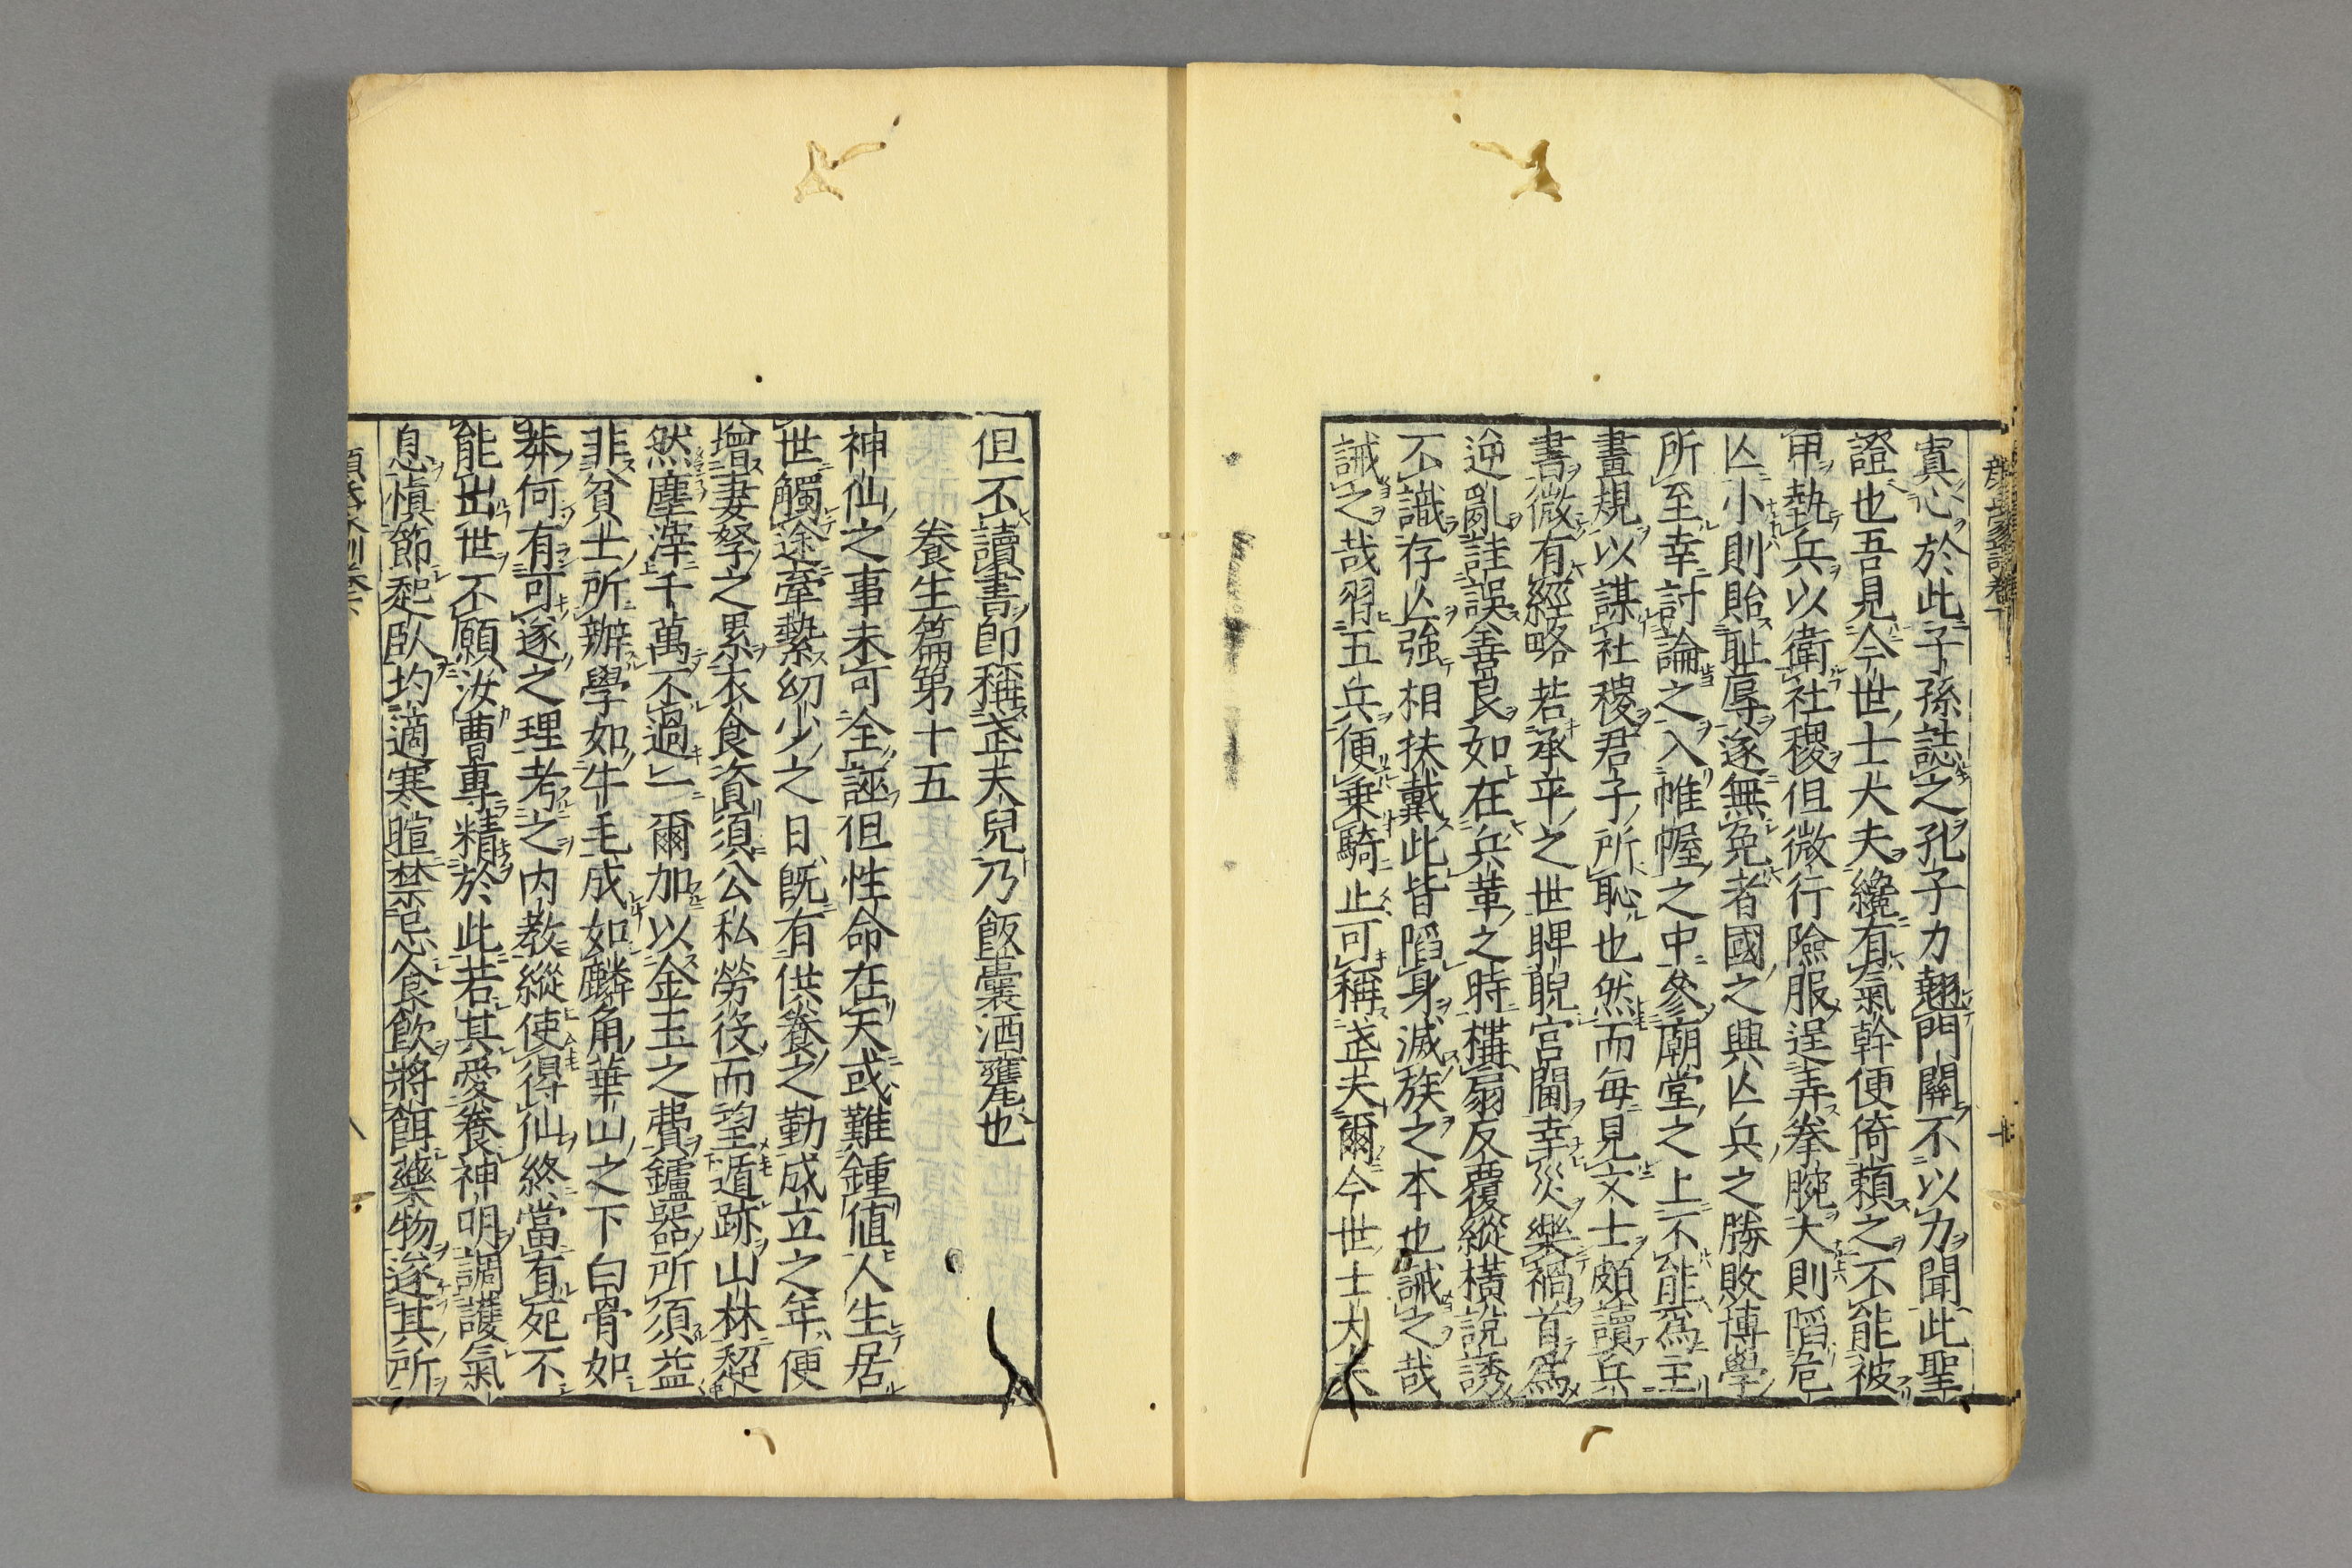 寘心於此子孫誌之孔子力翹門關不以力聞此聖
證也吾見今世士大夫纔有氣幹便倚賴之不能被
甲執兵以衛社稷但微行險服逞弄拳腕大則陷危
亾小則貽耻辱遂無免者國之興亾兵之勝敗博學
所至幸討論之入帷幄之中參廟堂之上不能爲主
畫規以謀社稷君子所恥也然而每見文士頗讀兵
書微有經略若承平之世睥睨宮閫幸災樂禍首爲
逆亂詿誤善良如在兵革之時構扇反覆縱橫說誘
不識存亾強相扶戴此皆陷身滅族之本也誡之哉
誡之哉習五兵便乗騎止可稱武夫爾今世士大夫
但不讀書即稱武夫兒乃飯囊酒甕也
養生篇第十五
神仙之事未可全誣但性命在天或難鍾値人生居
世觸途牽縶幼少之日既有供養之勤成立之年便
增妻孥之累衣食資須公私勞役而望遁跡山林超
然塵滓千萬不過一爾加以金玉之費鑪器所須益
非貧士所辦學如牛毛成如麟角華山之下白骨如
莽何有可遂之理考之内教縱使得仙終當有死不
能出世不願汝曹專精於此若其愛養神明調護氣
息愼節起臥均適寒暄禁忌食飲將餌藥物遂其所